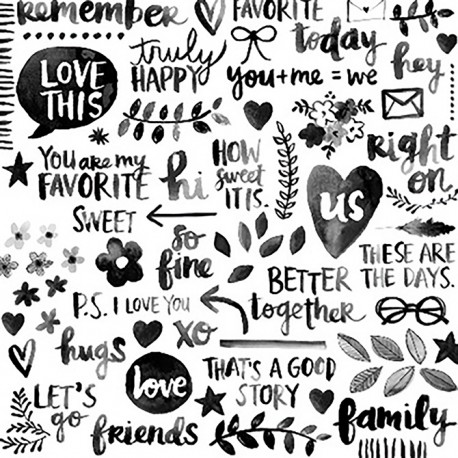 remember
FAVORITE
today
LOVE
THIS
truly
HAPPY
you+me=we
hey
You are my
FAVORITE
hi
HOW
sweet
IT IS.
right
on
us
SWEET
so
fine
THESE ARE
THE DAYS.
BETTER
together
P.S. I LOVE YOU
xo
hugs
love
THAT'S A GOOD
STORY
LET'S
go
friends
family